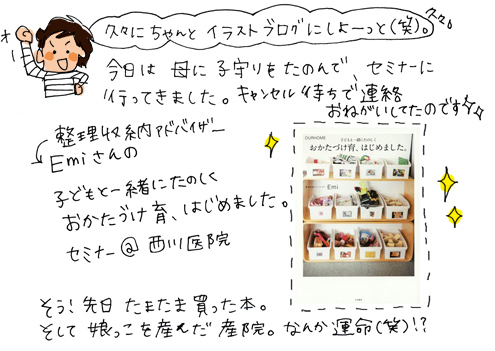 オー
久々にちゃんとイラストブログにしよーっと(笑)。
今日は母に子守りをたのんで、セミナーに
行ってきました。キャンセル待ちで連絡
おねがいしてたのです
整理収納アドバイザー
Emiさんの
子どもと一緒にたのしく
おかたづけ育、はじめました。
セミナー@西川医院
OURHOME
子どもと一緒にたのしく
おかたづけ育、はじめました。
Emi
そう!先日たまたま買った本。
そして娘っこを産んだ産院。なんか運命(笑)!?